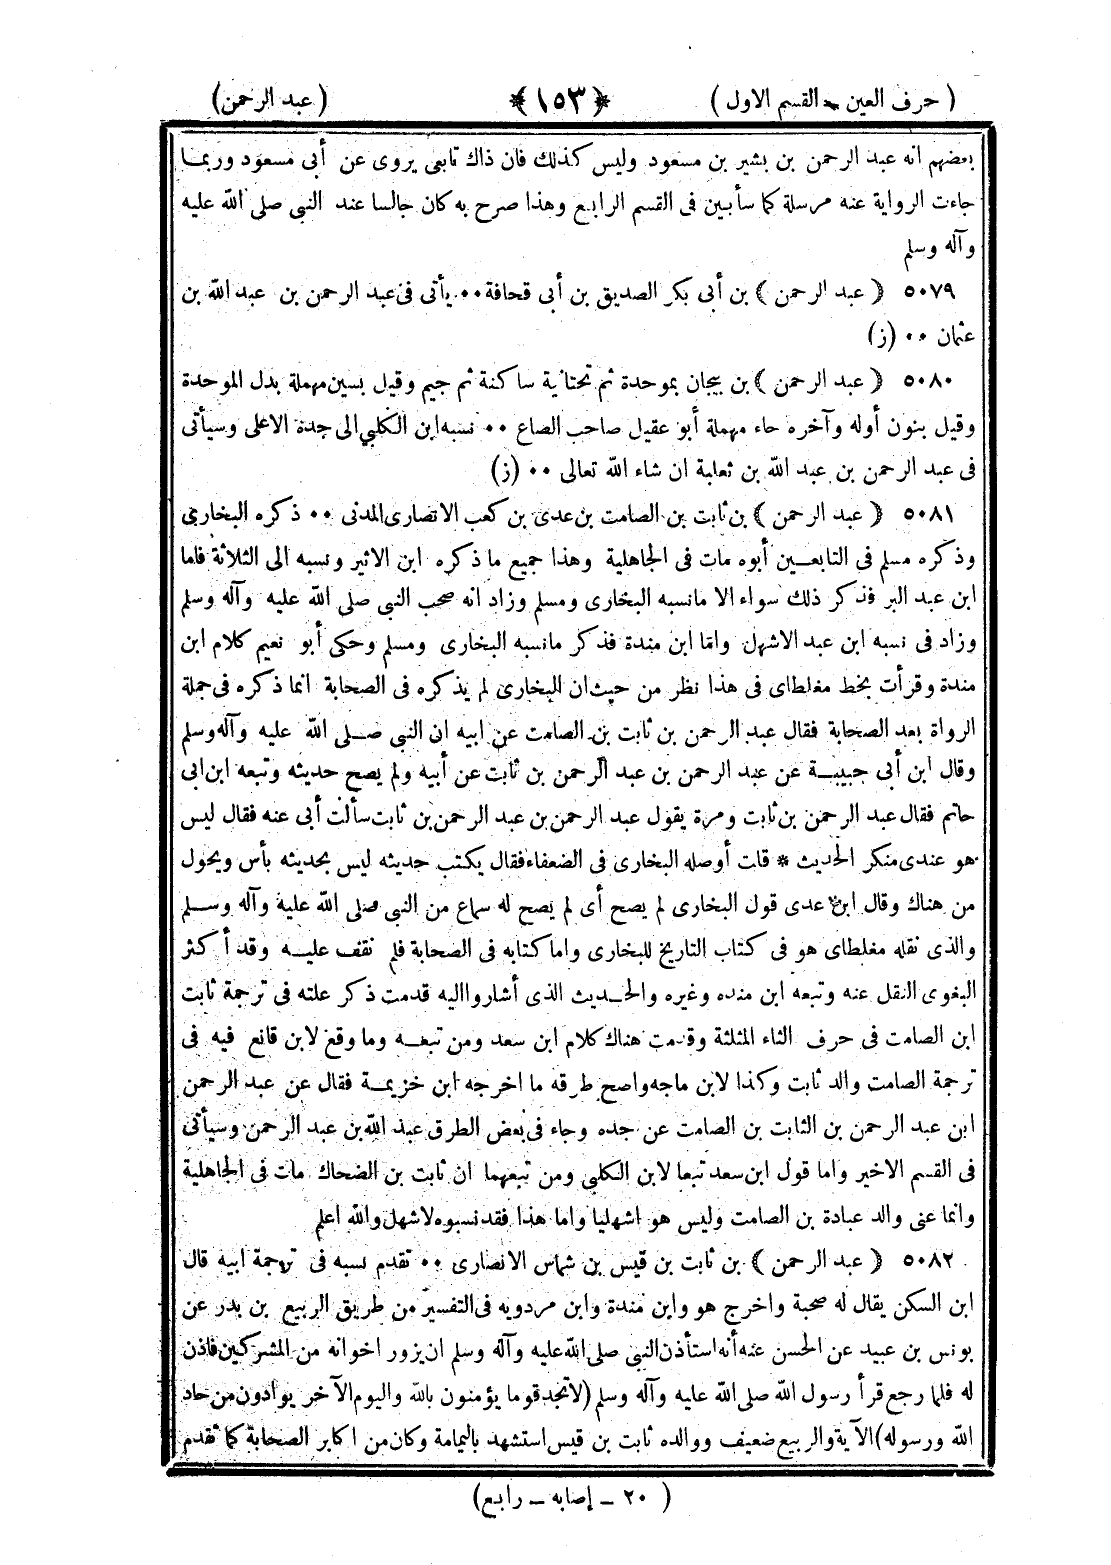 ( حرف العين ـ القسم الاول ) ﴿١٥٣﴾ ( عبد الرحمن)
بعضهم انه عبد الرحمن بن بشير بن مسعود وليس كذلك فان ذاك تابعى يروى عن أبى مسعود وربمـا
جاءت الرواية عنه مرسلة كما سأبين فى القسم الرابع وهذا صرح به كان جالسا عند النبى صلى الله عليه
وآله وسلم
٥٠٧٩ ﴿ عبد الرحمن ﴾ بن أبى بكر الصديق بن أبى قحافة ٠٠ يأتى فى عبد الرحمن بن عبد الله بن
عثمان ٠٠ (ز)
٥٠٨٠ ﴿ عبد الرحمن ﴾ بن بيجان بموحدة ثم تحتانية ساكنة ثم جيم وقيل بسين مهملة بدل الموحدة
وقيل بنون أوله وآخره حاء مهملة أبو عقيل صاحب الصاع ٠٠ نسبه ابن الكلبي الى جدة الاعلى وسيأتى
فى عبد الرحمن بن عبد الله بن ثعلبة ان شاء الله تعالى ٠٠ (ز)
٥٠٨١ ﴿ عبد الرحمن ﴾ بن ثابت بن الصامت بن عدى بن كعب الانصارى المدنى ٠٠ ذكره البخارى
وذكره مسلم فى التابعـين أبوه مات فى الجاهلية وهذا جميع ما ذكره ابن الاثير ونسبه الى الثلاثة فاما
ابن عبد البر فذكر ذلك سواء الا مانسبه البخارى ومسلم وزاد انه صحب النبى صلى الله عليه وآله وسلم
وزاد فى نسبه ابن عبد الاشهل وامّا ابن مندة فذكر مانسبه البخارى ومسلم وحكى أبو نعيم كلام ابن
مندة وقرأت بخط مغلطاى فى هذا نظر من حيث ان البخارى لم يذكره فى الصحابة انما ذكره فى جملة
الرواة بعد الصحابة فقال عبد الرحمن بن ثابت بن الصامت عن ابيه ان النبى صـلى الله عليه وآله وسلم
وقال ابن أبى حبيبـة عن عبد الرحمن بن عبد الرحمن بن ثابت عن أبيه ولم يصح حديثه وتبعه ابن ابى
حاتم فقال عبد الرحمن بن ثابت ومرة يقول عبد الرحمن بن عبد الرحمن بن ثابت سألت أبى عنه فقال ليس
هو عندى منكر الحديث * قلت أوصله البخارى فى الضعفاء فقال يكتب حديثه ليس بحديثه بأس ويحول
من هناك وقال ابن عدى قول البخارى لم يصح أى لم يصح له سماع من النبى صلى الله عليه وآله وسـلم
والذى نقله مغلطاى هو فى كتاب التاريخ للبخارى واما كتابه فى الصحابة فلم نقف عليـه وقد أكثر
البغوى النقل عنه وتبعه ابن منده وغيره والحـديث الذى أشاروا اليه قدمت ذكر علته فى ترجمة ثابت
ابن الصامت فى حرف الثاء المثلثة وقدمت هناك كلام ابن سعد ومن تبعـه وما وقع لابن قانع فيه فى
ترجمة الصامت والد ثابت وكذا لابن ماجه واصح طرقه ما اخرجه ابن خزيمـة فقال عن عبد الرحمن
ابن عبد الرحمن بن الثابت بن الصامت عن جده وجاء فى بعض الطرق عبد الله بن عبد الرحمن وسيأتى
فى القسم الاخير واما قول ابن سعد تبعا لابن الكلبي ومن تبعهما ان ثابت بن الضحاك مات فى الجاهلية
وانما عنى والد عبادة بن الصامت وليس هو اشهليا واما هذا فقد نسبوه لاشهل والله اعلم
٥٠٨٢ ﴿ عبد الرحمن ﴾ بن ثابت بن قيس بن شماس الانصارى ٠٠ تقدم نسبه فى ترجمة ابيه قال
ابن السكن يقال له صحبة واخرج هو وابن مندة وابن مردويه فى التفسير من طريق الربيع بن بدر عن
يونس بن عبيد عن الحسن عنه أنه استأذن النبى صلى الله عليه وآله وسلم ان يزور اخوانه من المشركين فاذن
له فلما رجع قرأ رسول الله صلى الله عليه وآله وسلم (لا تجد قوما يؤمنون بالله واليوم الآخر يوادون من حاد
الله ورسوله) الآية والربيع ضعيف ووالده ثابت بن قيس استشهد باليمامة وكان من اكابر الصحابة كما تقدم
( ٢٠ ـ إصابه ـ رابع)